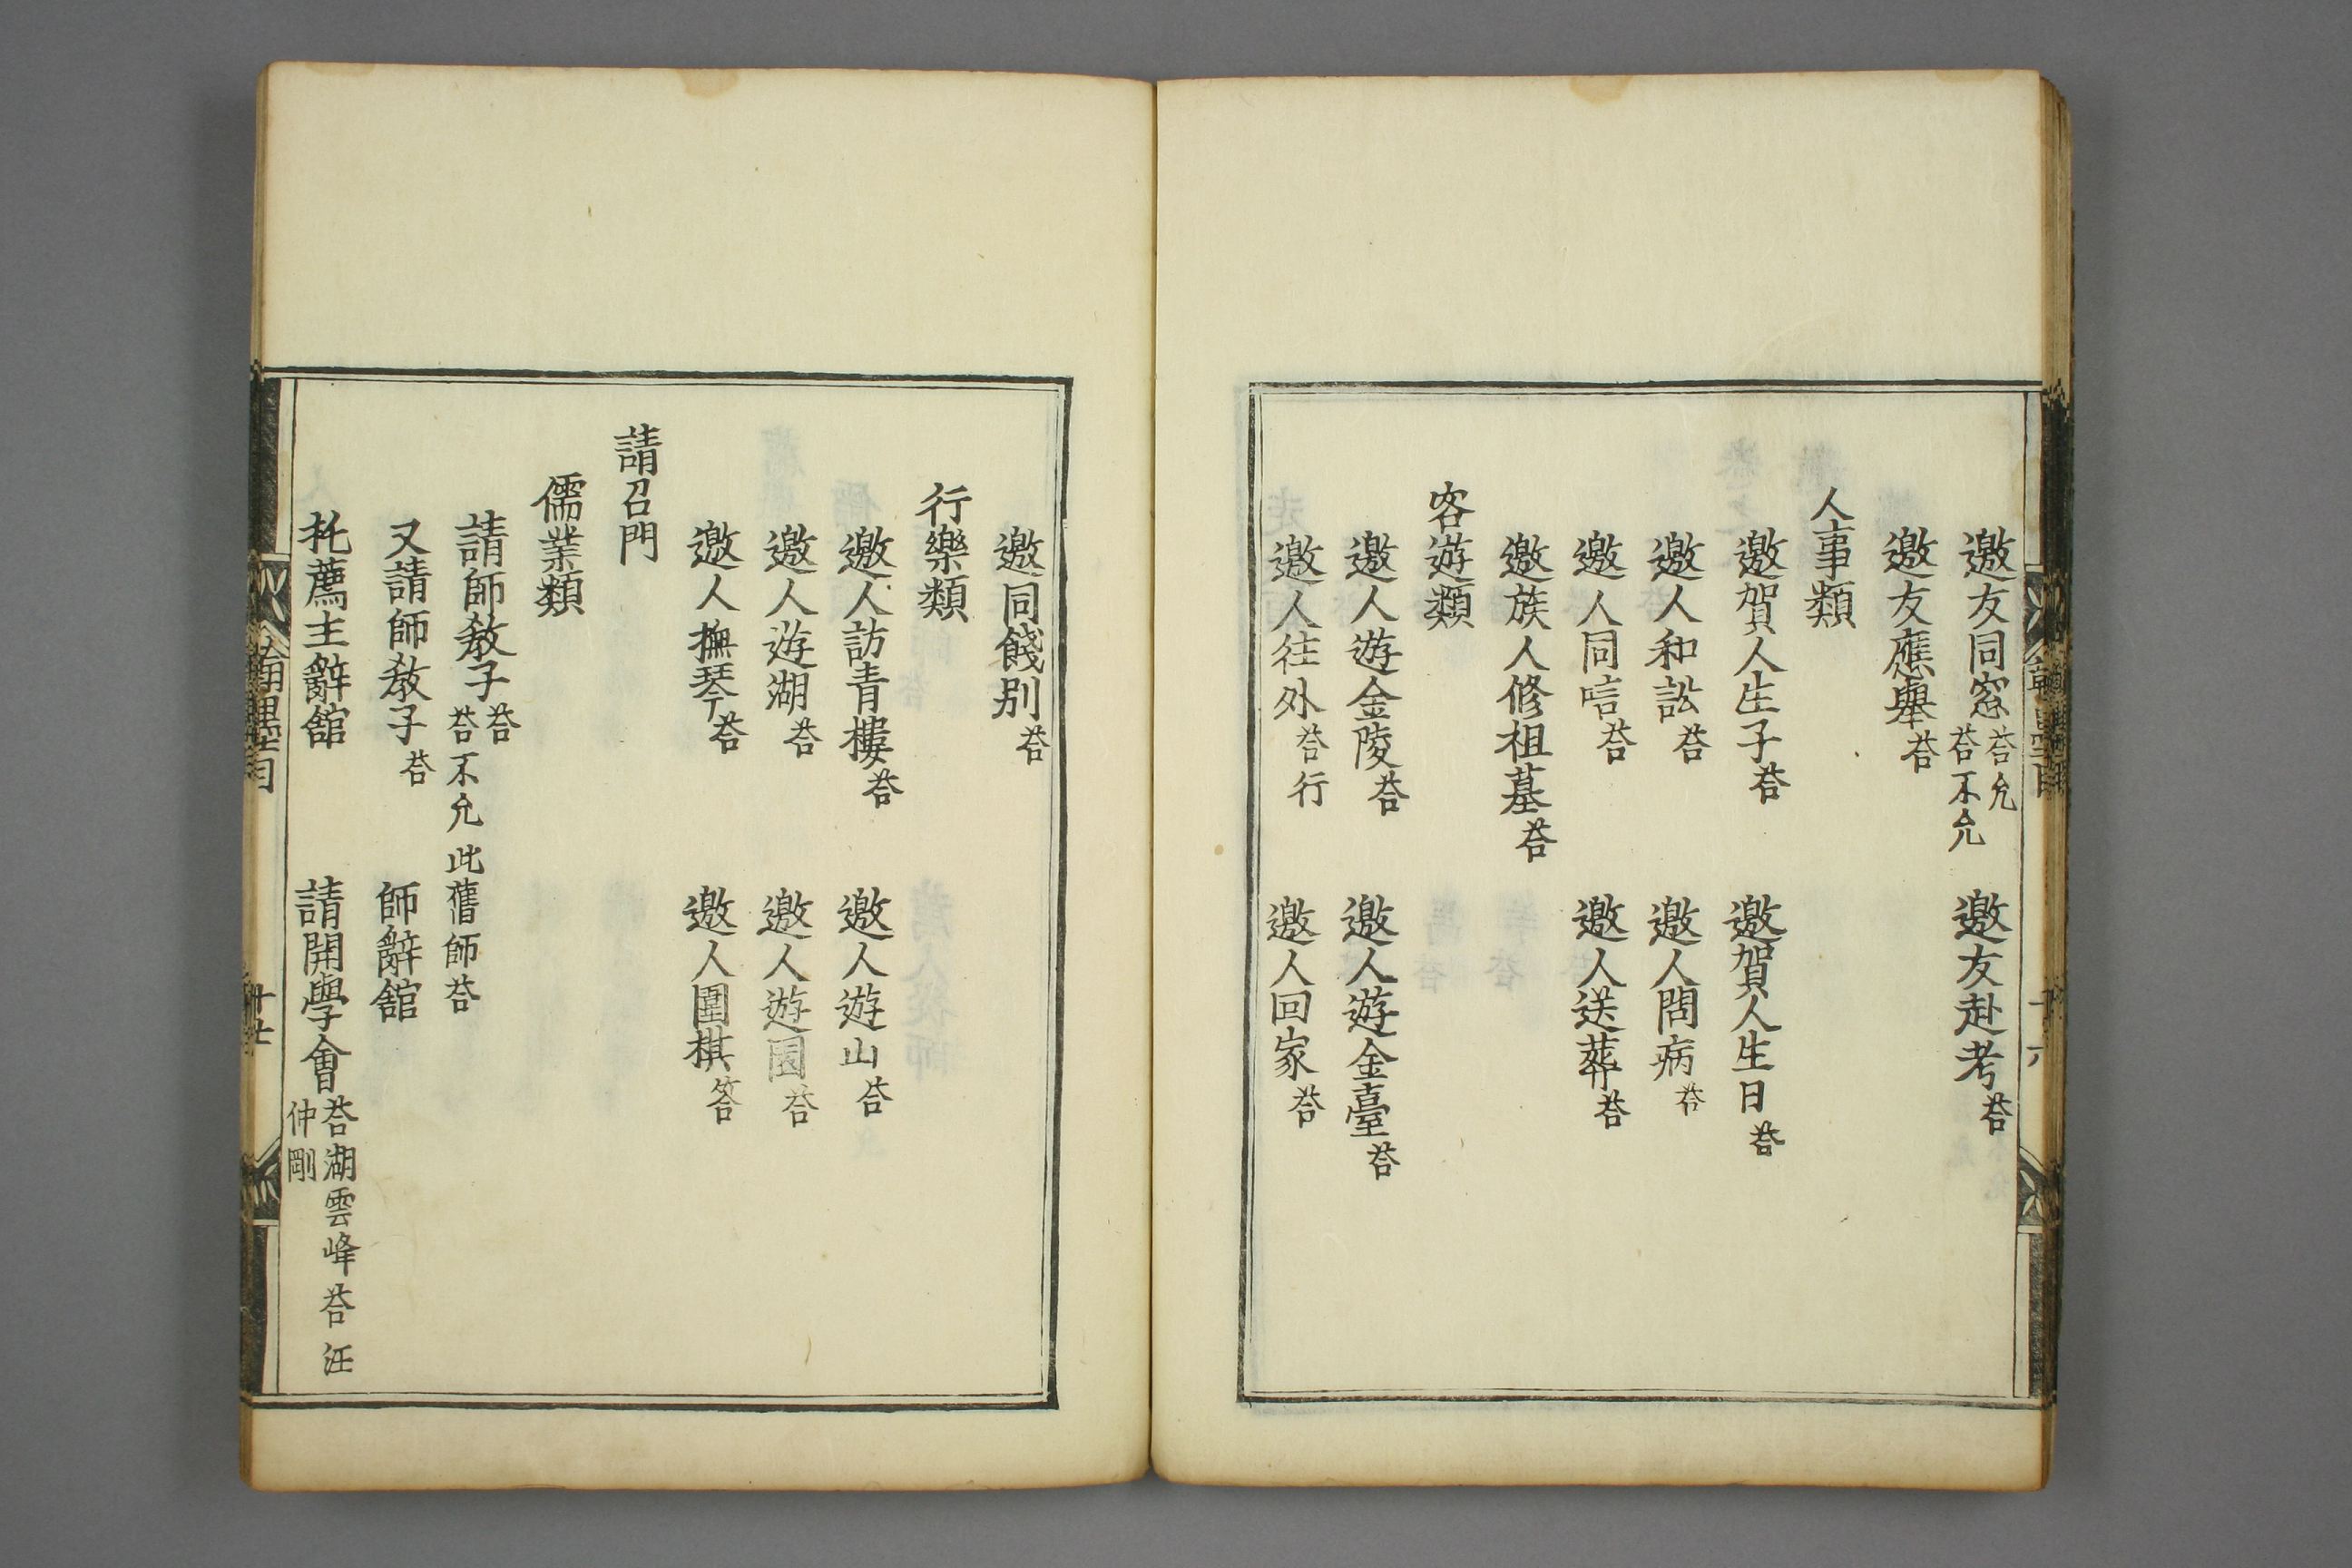 邀友同窓 荅允 荅不允 邀友赴考 荅
邀友應舉 荅
人事類
邀賀人生子 荅 邀賀人生日 荅
邀人和訟 荅 邀人問病 荅
邀人同唁 荅 邀人送葬 荅
邀族人修祖墓 荅
客遊類
邀人遊金陵 荅 邀人遊金臺 荅
邀人往外 荅行 邀人回家 荅
十六
邀同餞别 荅
行樂類
邀人訪青樓 荅 邀人遊山 荅
邀人遊湖 荅 邀人遊園 荅
邀人撫琴 荅 邀人圍棋 答
請召門
儒業類
請師敎子 荅 荅不允 此舊師荅
又請師敎子 荅 師辭舘
托薦主辭舘 請開學會 荅湖雲峰 荅汪仲剛
十七